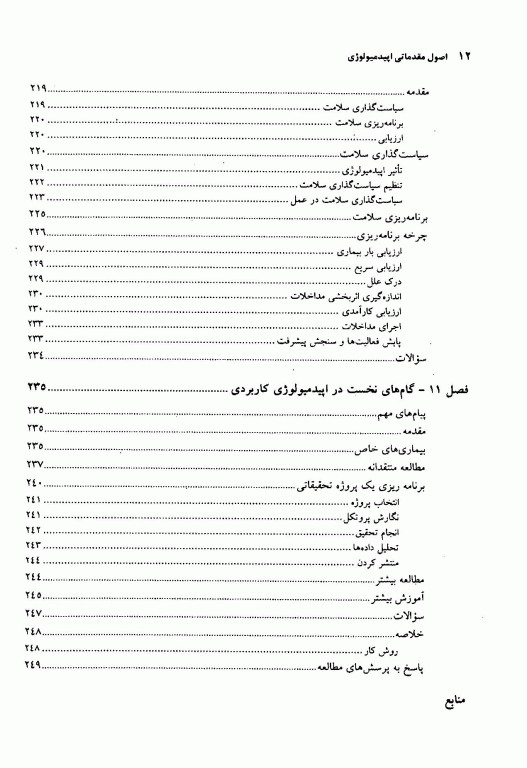 ۱۲ اصول مقدماتی اپیدمیولوژی
مقدمه ........ ۲۱۹
سیاست‌گذاری سلامت ........ ۲۱۹
برنامه‌ریزی سلامت ........ ۲۲۰
ارزیابی ........ ۲۲۰
سیاست‌گذاری سلامت ........ ۲۲۰
تأثیر اپیدمیولوژی ........ ۲۲۱
تنظیم سیاست‌گذاری سلامت ........ ۲۲۲
سیاست‌گذاری سلامت در عمل ........ ۲۲۳
برنامه‌ریزی سلامت ........ ۲۲۵
چرخه برنامه‌ریزی ........ ۲۲۶
ارزیابی بار بیماری ........ ۲۲۷
ارزیابی سریع ........ ۲۲۹
درک علل ........ ۲۲۹
اندازه‌گیری اثربخشی مداخلات ........ ۲۳۰
ارزیابی کارآمدی ........ ۲۳۰
اجرای مداخلات ........ ۲۳۳
پایش فعالیت‌ها و سنجش پیشرفت ........ ۲۳۳
سؤالات ........ ۲۳٤
فصل ۱۱ - گام‌های نخست در اپیدمیولوژی کاربردی ........ ۲۳۵
پیام‌های مهم ........ ۲۳۵
مقدمه ........ ۲۳۵
بیماری‌های خاص ........ ۲۳۵
مطالعه منتقدانه ........ ۲۳۷
برنامه ریزی یک پروژه تحقیقاتی ........ ۲٤۰
انتخاب پروژه ........ ۲٤۱
نگارش پروتکل ........ ۲٤۱
انجام تحقیق ........ ۲٤۲
تحلیل داده‌ها ........ ۲٤۳
منتشر کردن ........ ۲٤٤
مطالعه بیشتر ........ ۲٤٤
آموزش بیشتر ........ ۲٤۵
سؤالات ........ ۲٤۷
خلاصه ........ ۲٤۸
روش کار ........ ۲٤۸
پاسخ به پرسش‌های مطالعه ........ ۲٤۹
منابع